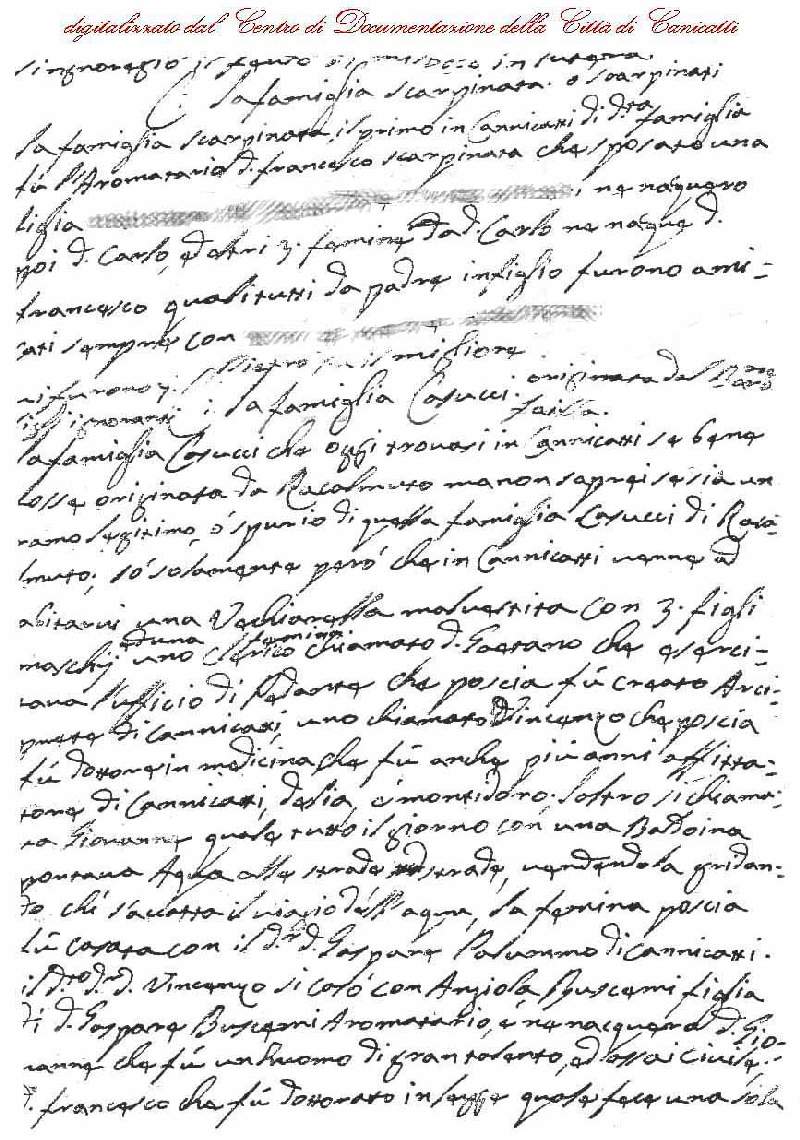 digitalizzato dal Centro di Documentazione della Città di Canicatti
signoreggiò il feudo di in Sutera.
la famiglia scarpinata. o scarpinati
la famiglia scarpinata, il primo in Cannicatti di dta famiglia
fù l'Aromatario d. francesco scarpinata che sposato una
figlia ne naquero
poi d. Carlo, ed altri 3. femine da d. Carlo ne naque d.
francesco quali tutti da padre in figlio furono ami-
cati sempre con
Pietro fu il migliore
vi furono
ignoranti la famiglia Casucci. originata dal Barne
failla.
la famiglia Casucci che oggi trovasi in Cannicatti se bene
fosse originata da Racalmuto ma non saprei se sia un
ramo legitimo, ò spurio di quella famiglia Casucci di Raca-
lmuto; sò solamente però che in Cannicatti venne ad
abitarvi una Vechiarella malvestita con 3. figli
ed una femina
maschij uno clerico chiamato d. Gaetano che eserci-
tava l'ufficio di Pedante che poscia fù creato Arci-
prete di Cannicatti, uno chiamato Vincenzo che poscia
fù dottore in medicina che fù anche più anni affitta-
tore di Cannicatti, delia, è montedoro. l'altro si chiama-
va Giovanne quale tutto il giorno con una
portava Aqua alle strade strade, vendendola gridan-
do chi s'accatta il viagio dell'aqua, la femina poscia
fù casata con il d.r d. Gaspare Palummo di Cannicatti.
il d.to d.r d. Vincenzo si casò con Angiola Buscemi figlia
di d. Gaspare Buscemi Aromatario, è ne nacquero d. Gio-
vanne che fù un huomo di gran talento, ed assai Civile.
d. francesco che fù dottorato in legge quale fece una sola